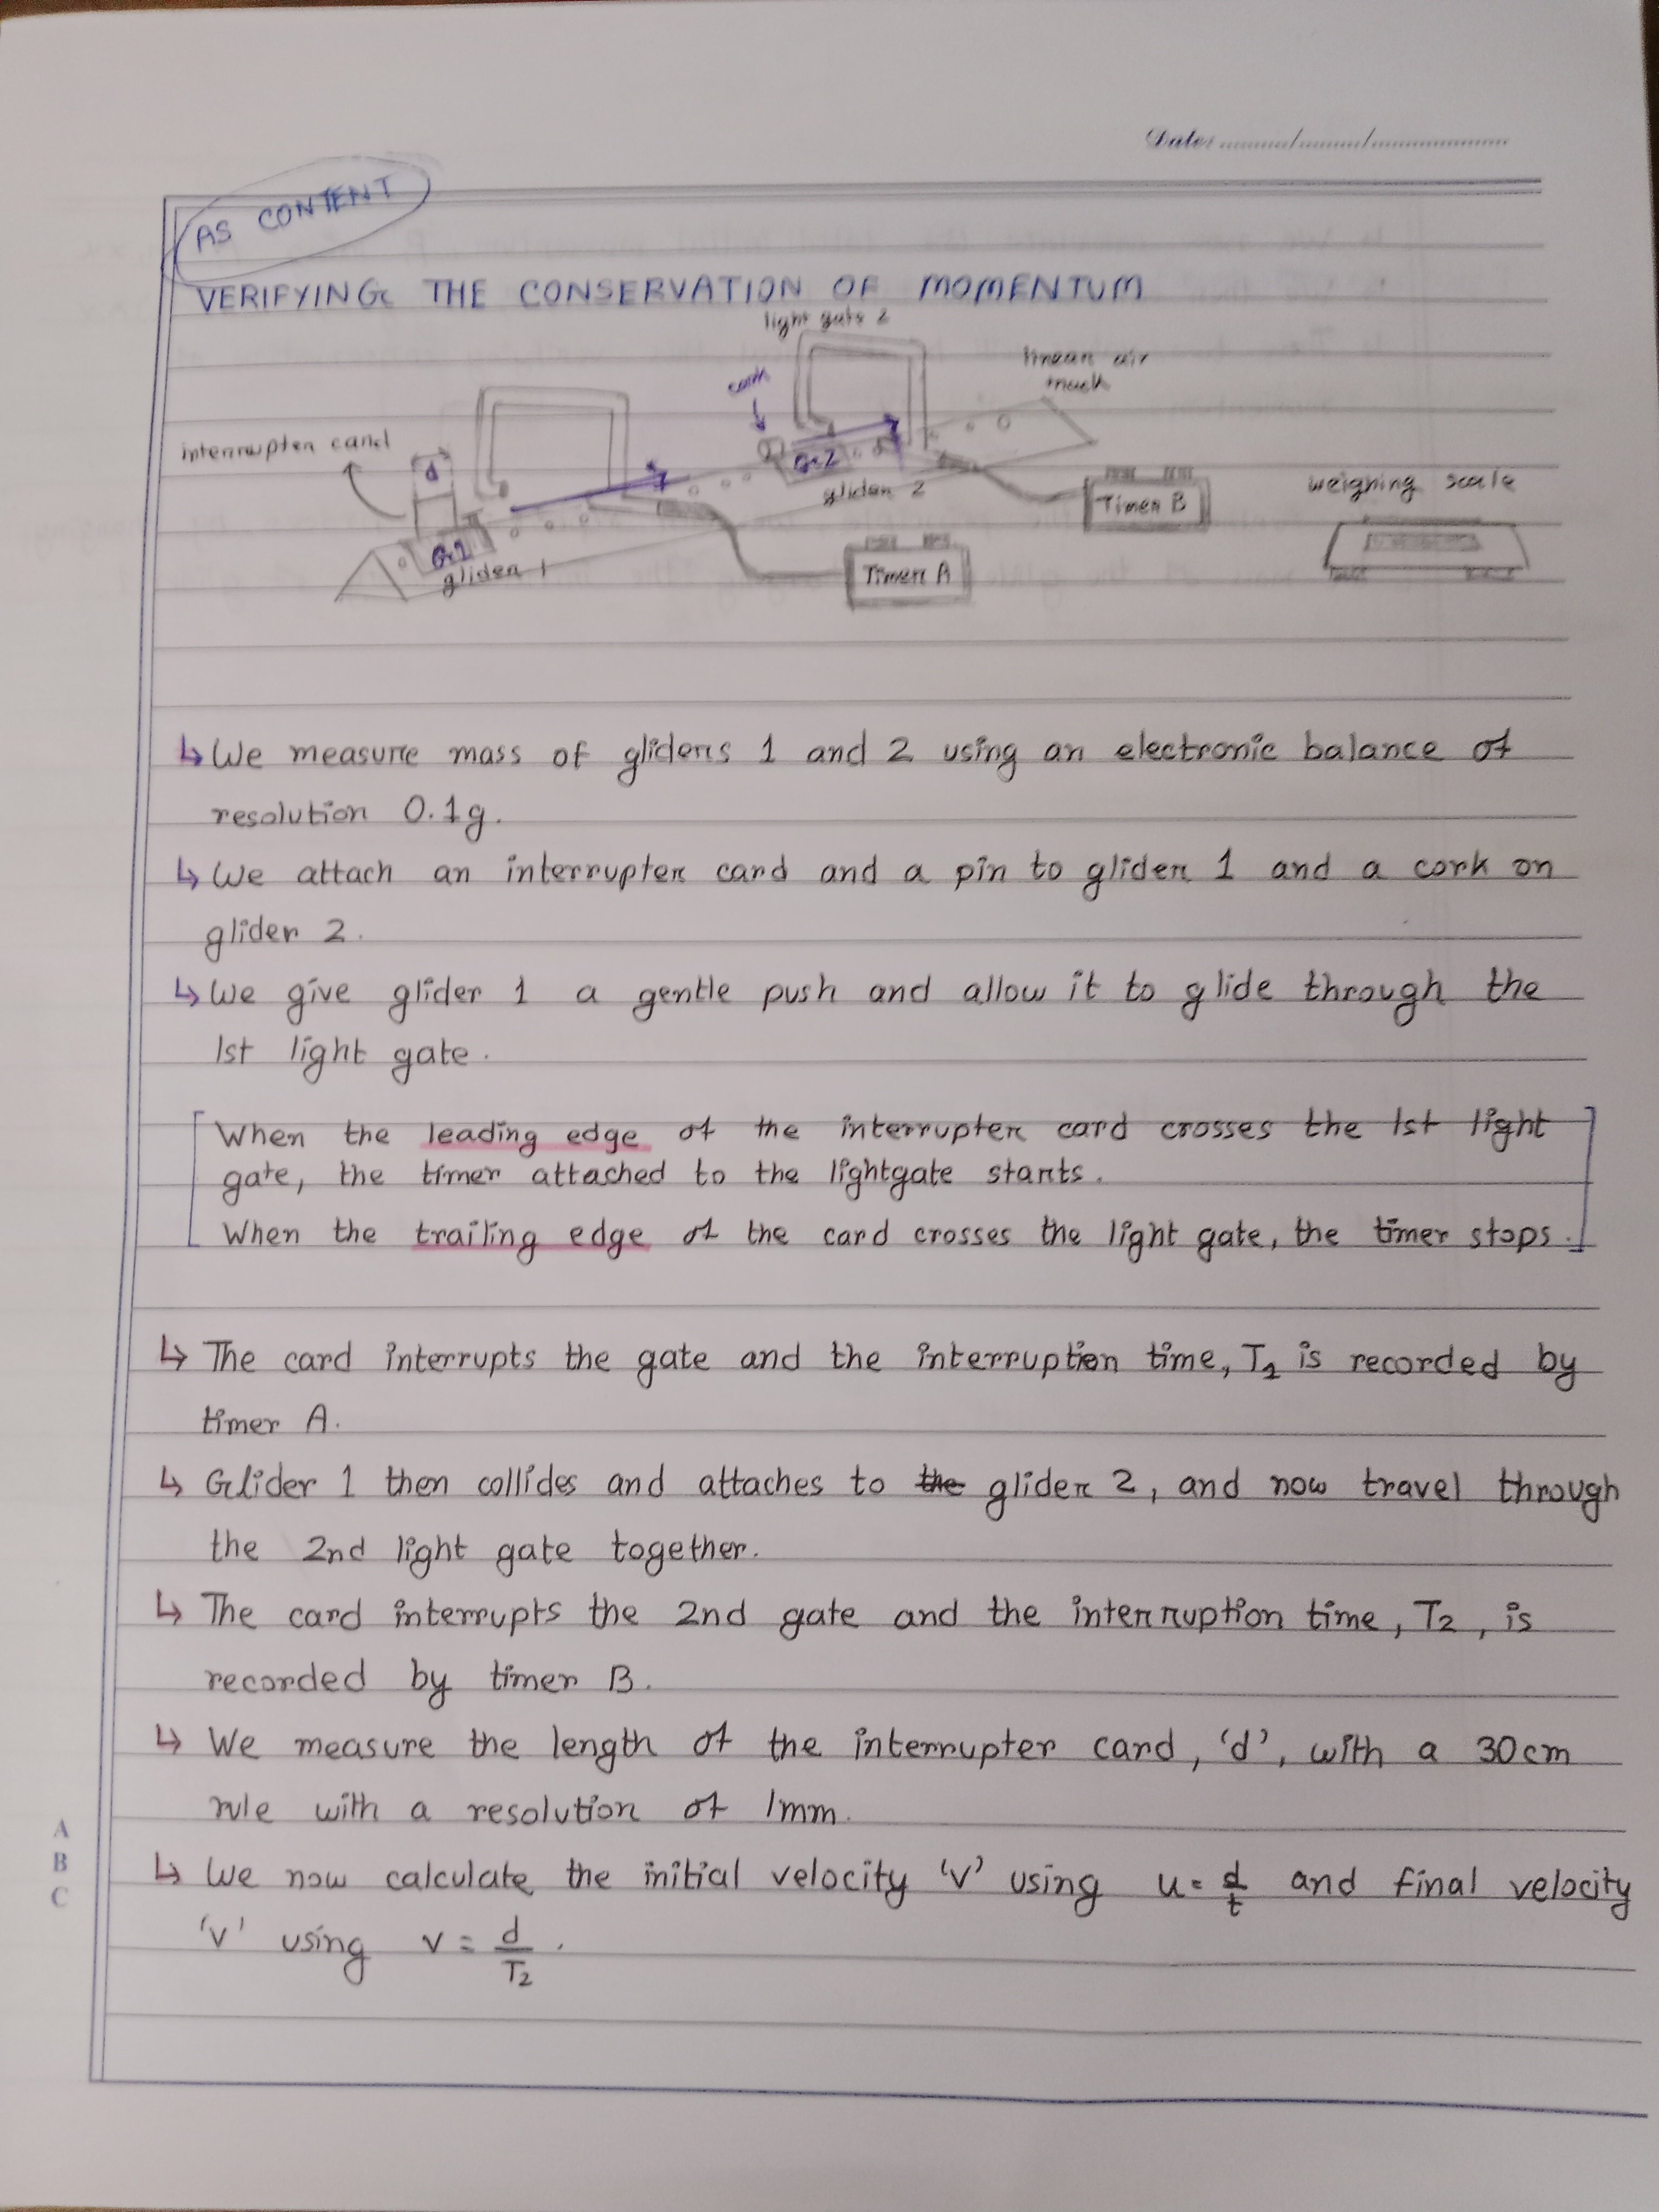 Date: ......../......../................
AS CONTENT
VERIFYING THE CONSERVATION OF MOMENTUM
light gate 2
linear air
track
cork
interrupter card
d
G2
glider 2
Timer B
weighing scale
G1
glider 1
Timer A
↳ We measure mass of gliders 1 and 2 using an electronic balance of
resolution 0.1g.
↳ We attach an interrupter card and a pin to glider 1 and a cork on
glider 2.
↳ We give glider 1 a gentle push and allow it to glide through the
1st light gate.
[When the leading edge of the interrupter card crosses the 1st light
gate, the timer attached to the lightgate starts.
When the trailing edge of the card crosses the light gate, the timer stops.]
↳ The card interrupts the gate and the interruption time, T1 is recorded by
timer A.
↳ Glider 1 then collides and attaches to the glider 2, and now travel through
the 2nd light gate together.
↳ The card interrupts the 2nd gate and the interruption time, T2, is
recorded by timer B.
↳ We measure the length of the interrupter card, 'd', with a 30cm
rule with a resolution of 1mm.
↳ We now calculate the initial velocity 'v' using u = d/t and final velocity
'v' using v = d/T2.
A
B
C